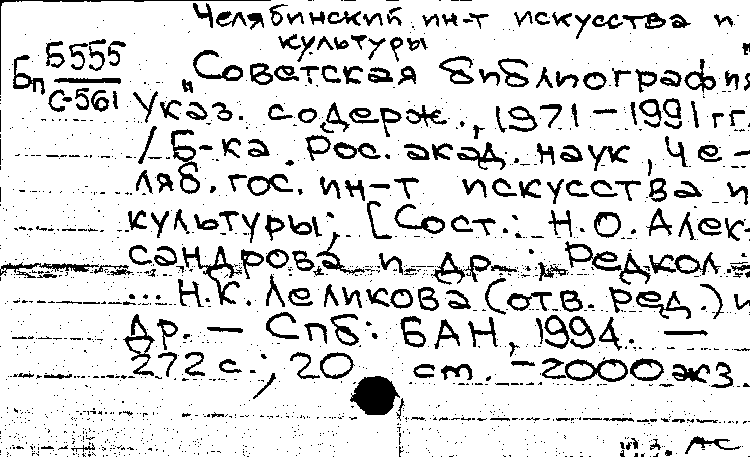 Челябинский ин-т искусства и
культуры
Бп Б555
С-561
"Советская библиография"
Указ. содерж., 1971-1991 гг.
/ Б-ка Рос. акад. наук, Че-
ляб. гос. ин-т искусства и
культуры; [Сост.: Н.О. Алек-
сандрова и др.; Редкол.:
... Н.К. Леликова (отв. ред.) и
др. — Спб: БАН, 1994. —
272 с.; 20 см. - 2000 экз.